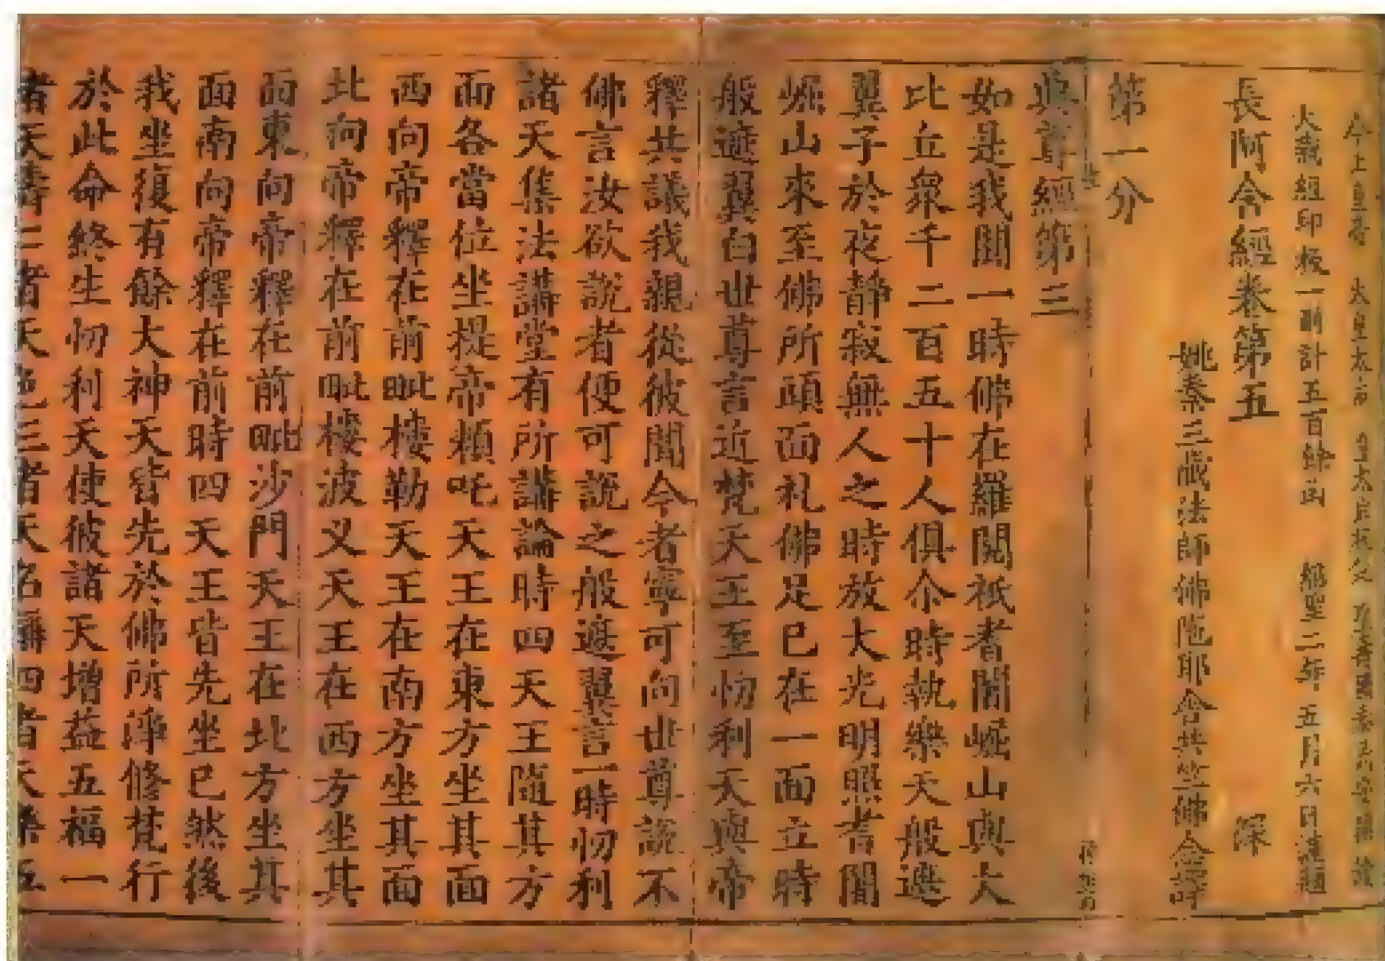 今上皇帝 太皇太后 皇太后
大藏經印板一副計五百餘函 紹聖二年五月六日謹題
長阿含經卷第五 深
姚秦三藏法師佛陁耶舍共竺佛念譯
第一分
典尊經第三
如是我聞一時佛在羅閱祇耆闍崛山與大
比丘衆千二百五十人俱尒時執樂天般遮
翼子於夜靜寂無人之時放大光明照耆闍
崛山來至佛所頭面礼佛足已在一面立時
般遮翼白世尊言近梵天王至忉利天與帝
釋共議我親從彼聞今者寧可向世尊說不
佛言汝欲說者便可說之般遮翼言一時忉利
諸天集法講堂有所講論時四天王隨其方
面各當位坐提帝頼吒天王在東方坐其面
西向帝釋在前毗樓勒天王在南方坐其面
北向帝釋在前毗樓波叉天王在西方坐其
面東向帝釋在前毗沙門天王在北方坐其
面南向帝釋在前時四天王皆先坐已然後
我坐復有餘大神天皆先於佛所淨修梵行
於此命終生忉利天使彼諸天增益五福一
者天壽二者天色三者天名稱四者天樂五